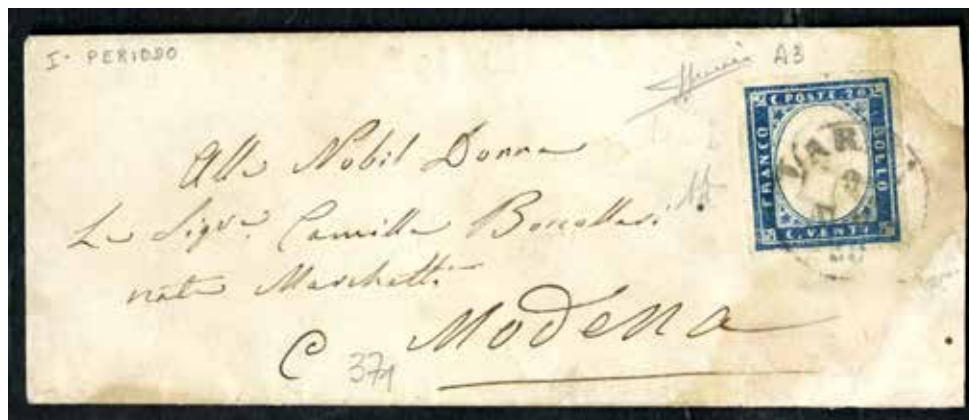 I° PERIODO
A3
C. POSTE. 20
FRANCO
BOLLO
C. VENTI
VAR
Alla Nobil Donna
La Sigra. Camilla Boscollari
nata Marchetti
C Modena
371